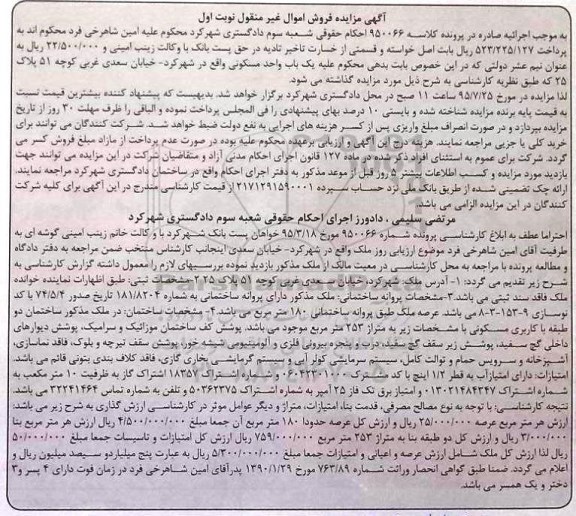 آگهی مزایده فروش اموال غیر منقول نوبت اول
به موجب اجرائیه صادره در پرونده کلاسه ۹۵۰۰۶۶ احکام حقوقی شعبه سوم دادگستری شهرکرد محکوم علیه امین شاهرخی فرد محکوم اند به
پرداخت ۵۲۳/۲۲۵/۱۲۷ ریال بابت اصل خواسته و قسمتی از خسارت تاخیر تادیه در حق پست بانک با وکالت زینب امینی و ۲۲/۵۰۰/۰۰۰ ریال به
عنوان نیم عشر دولتی که در این خصوص بابت بدهی محکوم علیه یک باب واحد مسکونی واقع در شهرکرد- خیابان سعدی غربی کوچه ۵۱ پلاک
۲۵ که طبق نظریه کارشناسی به شرح ذیل مورد مزایده گذاشته می شود.
لذا مزایده در مورخ ۹۵/۷/۲۵ ساعت ۱۱ صبح در محل دادگستری شهرکرد برگزار خواهد شد. بدیهیست که پیشنهاد کننده بیشترین قیمت نسبت
به قیمت پایه برنده مزایده شناخته شده و بایستی ۱۰ درصد بهای پیشنهادی را فی المجلس پرداخت نموده و الباقی را ظرف مهلت ۳۰ روز از تاریخ
مزایده بپردازد و در صورت انصراف مبلغ واریزی پس از کسر هزینه های اجرایی به نفع دولت ضبط خواهد شد. شرکت کنندگان می توانند برای
خرید کلی یا جزیی مراجعه نمایند. هزینه درج این آگهی و ارزیابی برعهده محکوم علیه بوده در صورت عدم پرداخت از مازاد مبلغ فروش کسر می
گردد. شرکت برای عموم به استثنای افراد ذکر شده در ماده ۱۲۷ قانون اجرای احکام مدنی آزاد و متقاضیان شرکت در این مزایده می توانند جهت
بازدید مورد مزایده و کسب اطلاعات بیشتر ۵ روز قبل از موعد مذکور به دفتر اجرای احکام واقع در ساختمان دادگستری شهرکرد مراجعه نمایند.
ارائه چک تضمینی شده از طریق بانک ملی نزد حساب سپرده ۲۱۷۱۲۹۱۵۹۰۰۰۱ از قیمت کارشناسی مندرج در این آگهی برای کلیه شرکت
کنندگان در این مزایده الزامی می باشد.
مرتضی سلیمی ، دادورز اجرای احکام حقوقی شعبه سوم دادگستری شهرکرد
احتراما عطف به ابلاغ کارشناسی پرونده شماره ۹۵۰۰۶۶ مورخ ۹۵/۳/۱۸ خواهان پست بانک شهرکرد با و کالت خانم زینب امینی گوشه ای به
طرفیت آقای امین شاهرخی فرد موضوع ارزیابی روز ملک واقع در شهرکرد- خیابان سعدی اینجانب کارشناس منتخب ضمن مراجعه به دفتر دادگاه
و مطالعه پرونده با مراجعه به محل کارشناسی در معیت مالک از ملک مذکور بازدید نموده بررسیهای لازم را معمول داشته گزارش کارشناسی به
شرح زیر تقدیم می گردد: ۱- آدرس ملک: شهرکرد، خیابان سعدی غربی، کوچه ۵۱ پلاک ۲۵ ۲-مشخصات ثبتی: طبق اظهارات نماینده خوانده
ملک فاقد سند ثبتی می باشد.۳-مشخصات پروانه ساختمانی: ملک مذکور دارای پروانه ساختمانی به شماره ۱۸۱/۸۲۰۴ تاریخ صدور ۷۴/۵/۴ با کد
نوسازی ۹-۱۵۳-۳-۸ می باشد. عرصه ملک طبق پروانه ساختمانی ۱۸۰ متر مربع می باشد ۴- مشخصات ساختمان: در ملک مذکور ساختمان دو
طبقه با کاربری مسکونی با مشخصات زیر به متراژ ۲۵۳ متر مربع موجود می باشد. پوشش کف ساختمان موزائیک و سرامیک، پوشش دیوارهای
داخلی گچ سفید، پوشش زیر سقف گچ سفید، درب و پنجره بیرونی فلزی و آلومینیومی شیشه خور، پوشش سقف تیرچه و بلوک، فاقد نماسازی،
آشپزخانه و سرویس حمام و توالت کامل، سیستم سرمایشی کولر آبی و سیستم گرمایشی بخاری گازی، فاقد کلاف بندی بتونی قائم می باشد.
امتیازات: دارای امتیازآب به قطر ۱/۲ اینچ با کد مشترک ۰۶۰۴۲۳۰۰۱۰ و شماره اشتراک ۱۸۳۵۷ اشتراک گاز به ظرفیت ۱۰ متر مکعب به
شماره اشتراک ۰۱۳۰۲۱۴۸۴۳۴۷ و امتیاز برق تک فاز ۲۵ آمپر به شماره اشتراک ۵۰۳۶۲۳۷۵ و تلفن به شماره تماس ۳۲۲۴۱۴۶۴ می باشد.
نتیجه کارشناسی: با توجه به نوع مصالح مصرفی، قدمت بنا، امتیازات، متراژ و دیگر عوامل موثر در کارشناسی ارزش گذاری به شرح زیر می باشد:
ارزش هر متر مربع عرصه ۲۵/۰۰۰/۰۰۰ ریال و ارزش کل عرصه حدودا ۱۸۰ متر مربع آن جمعا مبلغ ۴/۵۰۰/۰۰۰/۰۰۰ ریال و ارزش هر متر مربع بنا
۳/۰۰۰/۰۰۰ ریال و ارزش کل دو طبقه بنا به متراژ ۲۵۳ متر مربع ۷۵۹/۰۰۰/۰۰۰ ریال ارزش کل امتیازات و تاسیسات جمعا مبلغ ۵۰/۰۰۰/۰۰۰
ریال لذا ارزش کل ملک شامل ارزش عرصه و اعیانی و امتیازات جمعا مبلغ ۵/۳۰۰/۰۰۰/۰۰۰ ریال به عبارت پنج میلیاردو سیصد میلیون ریال و
اعلام می گردد. ضمنا طبق گواهی انحصار وراثت شماره ۷۶۳/۸۹ مورخ ۱۳۹۰/۱/۲۹ پدرآقای امین شاهرخی فرد در زمان فوت دارای ۴ پسر و۳
دختر و یک همسر می باشد.